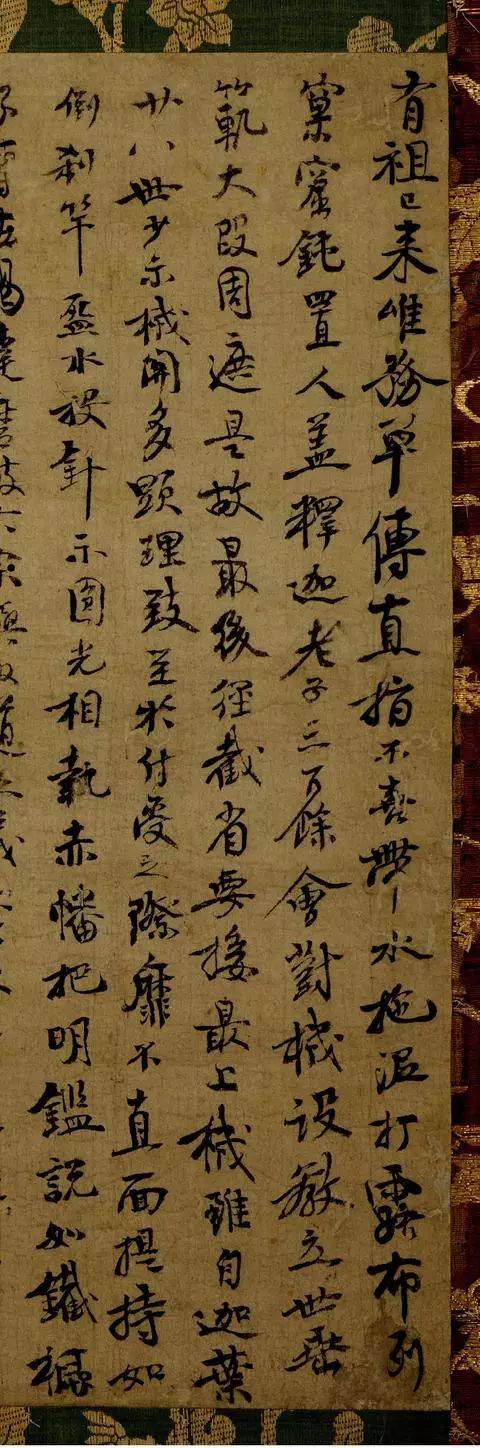 有祖已来唯務單傳直指不喜帶水拖泥打露布列
窠窟鈍置人盖釋迦老子三百餘會對機設教立世垂
範大段周遮是故最後徑截省要接最上機雖自迦葉
廿八世少示機關多顯理致至於付受之際靡不直面提持如
倒刹竿盌水投針示圓光相執赤幡把明鑑説如鐵橛